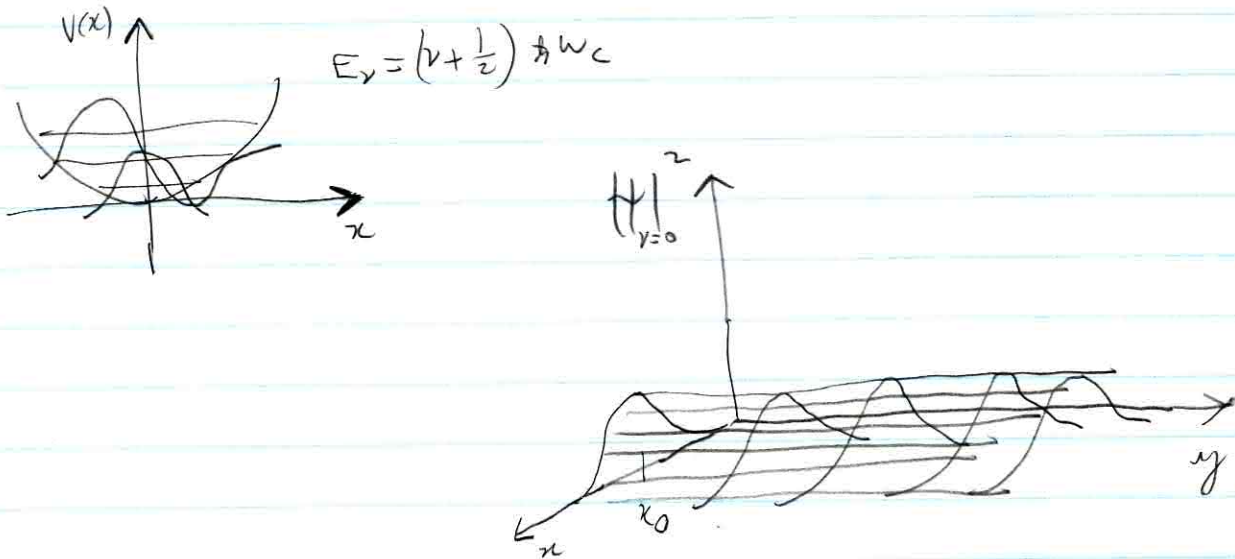 V(x)
E_ν = (ν + 1/2) ħω_c
x
|Ψ|²_ν=0
y
x₀
x